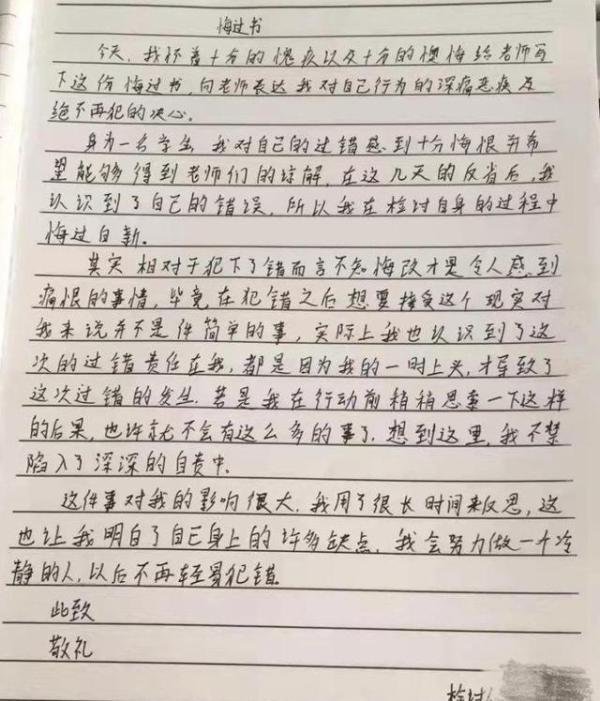 悔过书
今天，我怀着十分的愧疚以及十分的懊悔给老师写
下这份悔过书，向老师表达我对自己行为的深痛恶疾及
绝不再犯的决心。
身为一名学生，我对自己的过错感到十分悔恨并希
望能够得到老师们的谅解，在这几天的反省后，我
认识到了自己的错误，所以我在检讨自身的过程中
悔过自新。
其实相对于犯下了错而言不知悔改才是令人感到
痛恨的事情，毕竟在犯错之后想要接受这个现实对
我来说并不是件简单的事，实际上我也认识到了这
次的过错责任在我，都是因为我的一时上头，才导致了
这次过错的发生.若是我在行动前稍稍思索一下这样
的后果，也许就不会有这么多的事了.想到这里，我不禁
陷入了深深的自责中.
这件事对我的影响很大.我用了很长时间来反思，这
也让我明白了自己身上的许多缺点.我会努力做一个冷
静的人，以后不再轻易犯错.
此致
敬礼
检讨